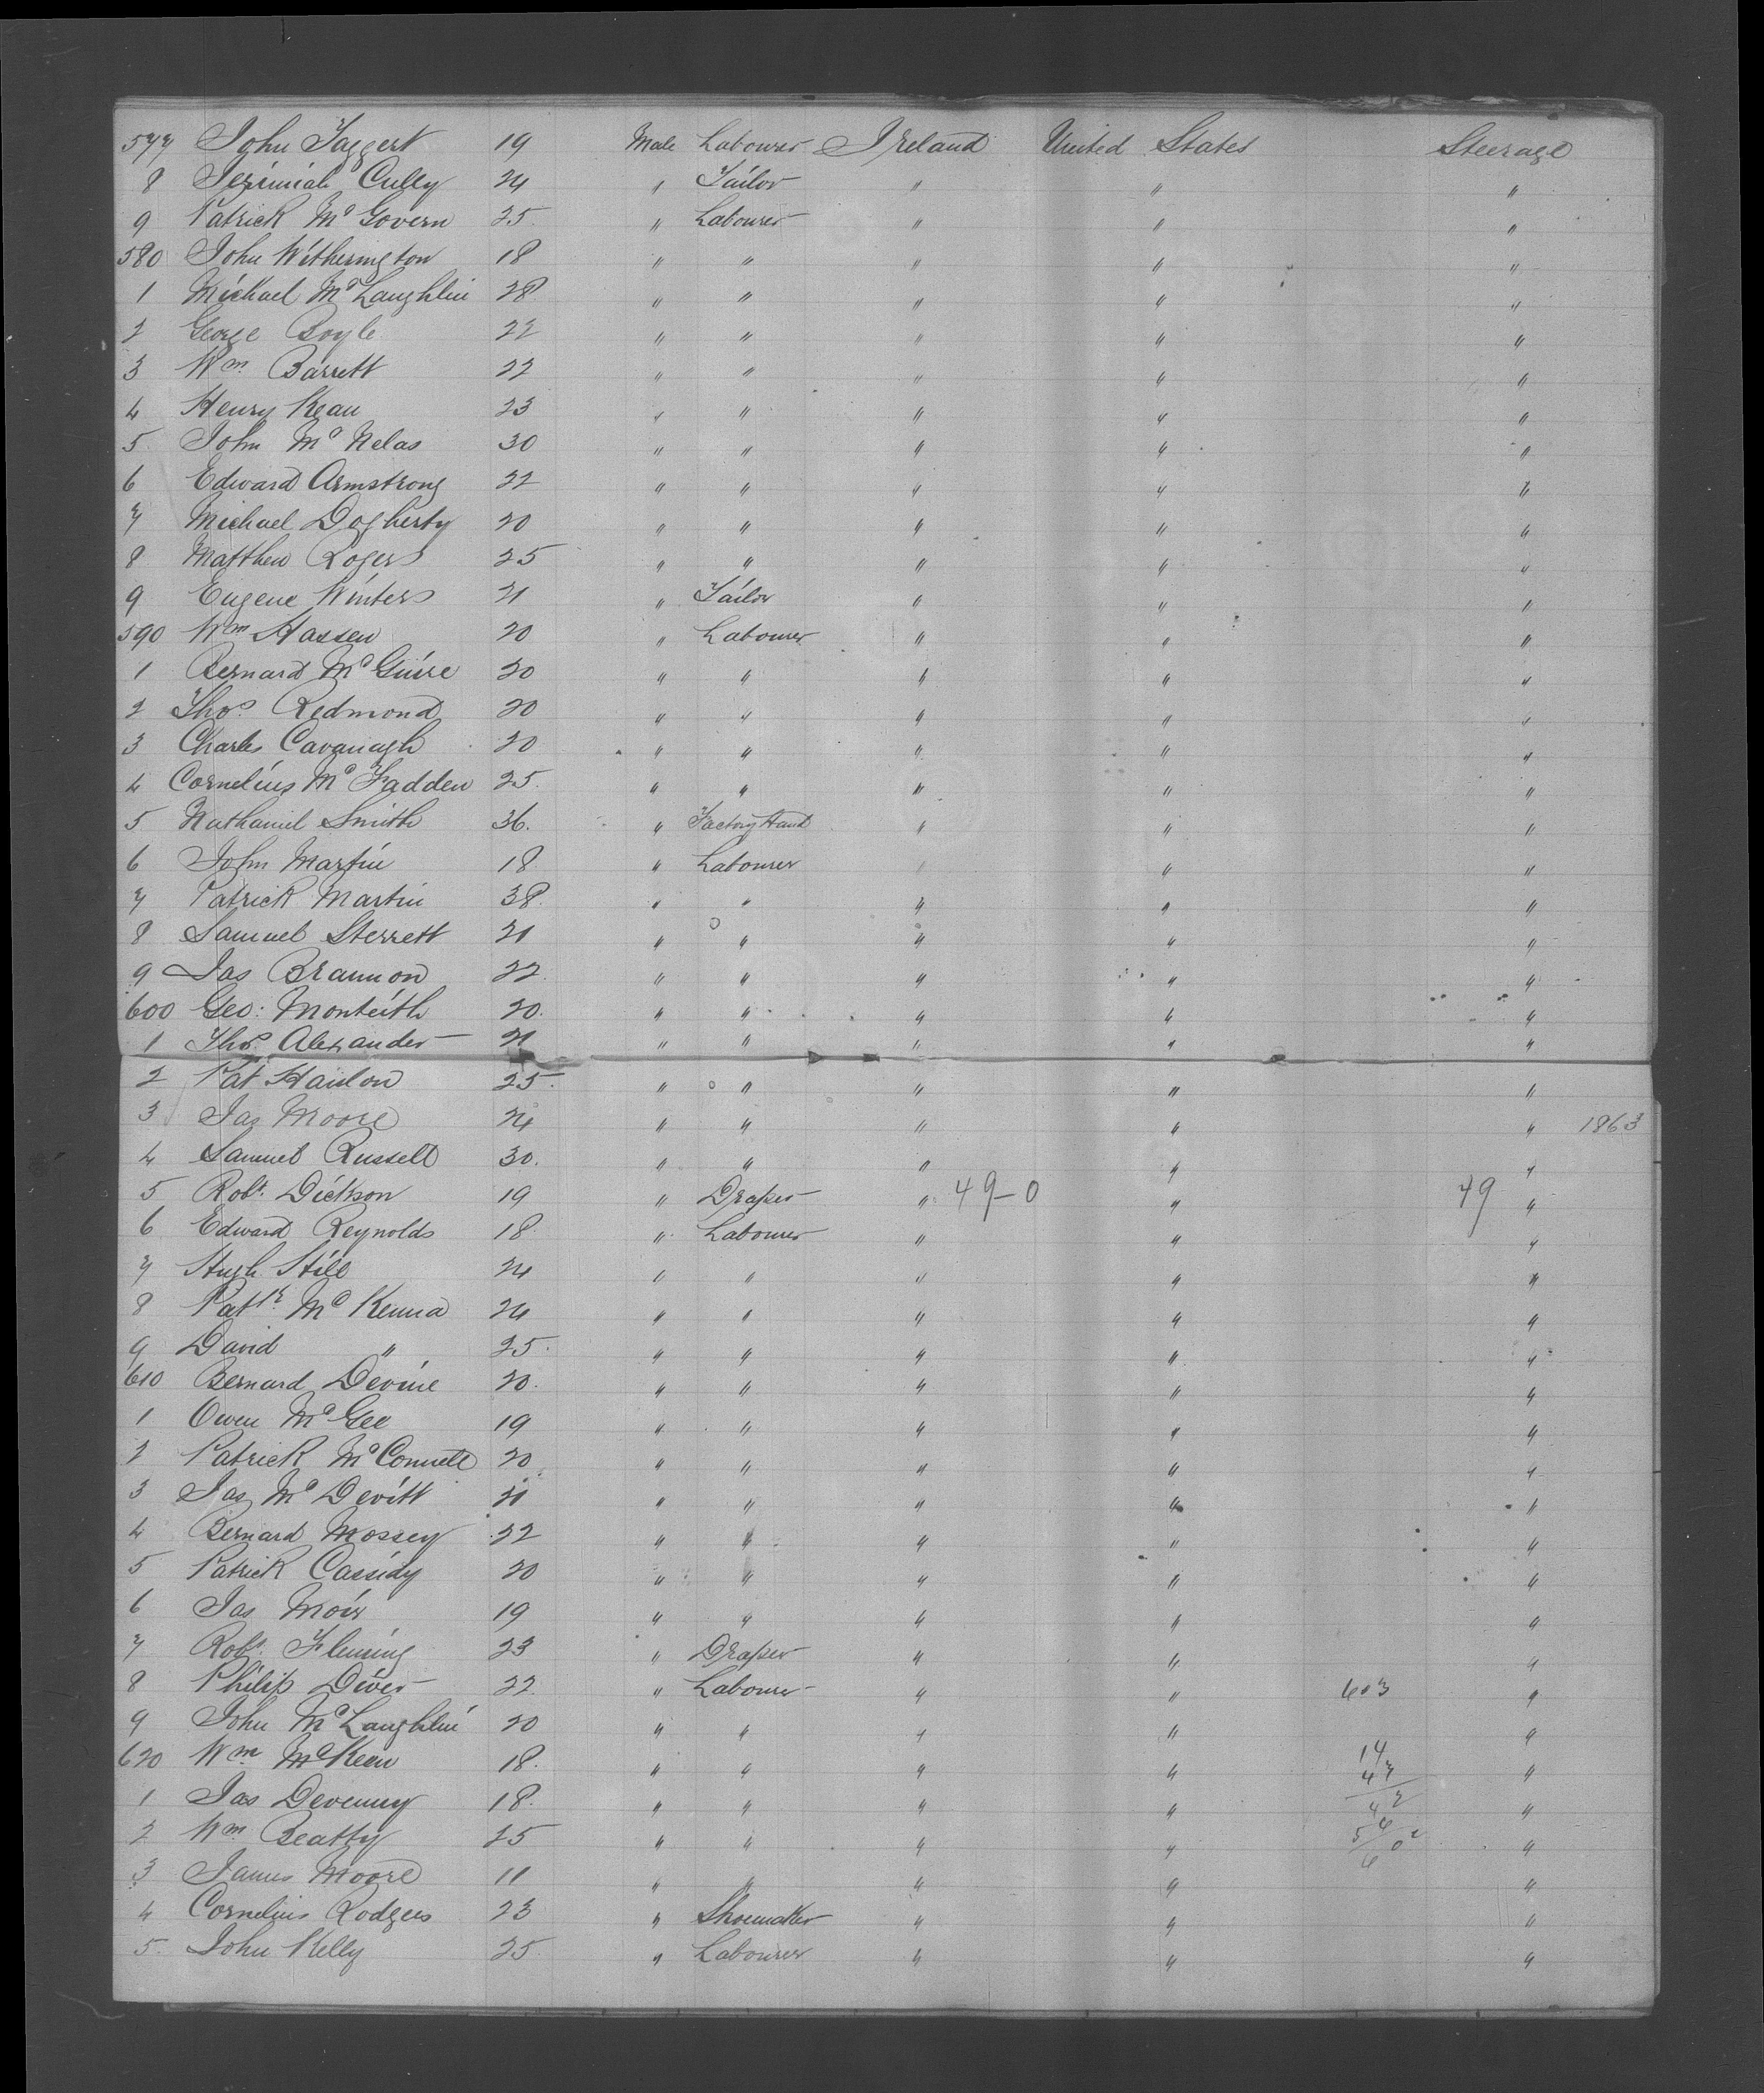 577 John Taggert 19 Male Labourer Ireland United States Steerage
8 Jerimiah Cully 24 " Tailor " " "
9 Patrick Mc Govern 25 " Labourer " " "
580 John Witherington 18 " " " " "
1 Michael Mc Laughlin 28 " " " " "
2 George Boyle 22 " " " " "
3 Wm Barrett 22 " " " " "
4 Henry Kean 23 " " " " "
5 John Mc Nelas 30 " " " " "
6 Edward Armstrong 22 " " " " "
7 Michael Dogherty 20 " " " " "
8 Matthew Rogers 25 " " " " "
9 Eugene Winters 21 " Tailor " " "
590 Wm Hassen 20 " Labourer " " "
1 Bernard Mc Guire 20 " " " " "
2 Thos. Redmond 20 " " " " "
3 Charles Cavanagh 20 " " " " "
4 Cornelius Mc Fadden 25 " " " " "
5 Nathaniel Smith 36. " Factory Hand " " "
6 John Martin 18 " Labourer " " "
7 Patrick Martin 38 " " " " "
8 Samuel Sterrett 21 " " " " "
9 Jas Brannon 22 " " " " "
600 Geo: Monteith 20. " " " " "
1 Thos. Alexander 21 " " " " "
2 Pat Hanlon 25. " " " " "
3 Jas Moore 24 " " " " " 1863
4 Samuel Russell 30. " " " " "
5 Robt. Dickson 19 " Draper " 49-0 " 49 "
6 Edward Reynolds 18 " Labourer " " "
7 Hugh Still 24 " " " " "
8 Pattk. Mc Kenna 24 " " " " "
9 David " 25. " " " " "
610 Bernard Devine 20. " " " " "
1 Owen Mc Gee 19 " " " " "
2 Patrick Mc Connell 20 " " " " "
3 Jas Mc Devitt 21 " " " " "
4 Bernard Mossey 22 " " " " "
5 Patrick Cassidy 20 " " " " "
6 Jas Moir 19 " " " " "
7 Robt. Fleming 23 " Draper " " "
8 Philip Diver 22 " Labourer " " 603 "
9 John Mc Laughlin 20 " " " " "
620 Wm Mc Kean 18. " " " " 14 47 "
1 Jas Devenny 18. " " " " "
2 Wm Beatty 25 " " " " "
3 James Moore 11 " " " " "
4 Cornelius Rodgers 23 " Shoemaker " " "
5. John Kelly 25 " Labourer " " "